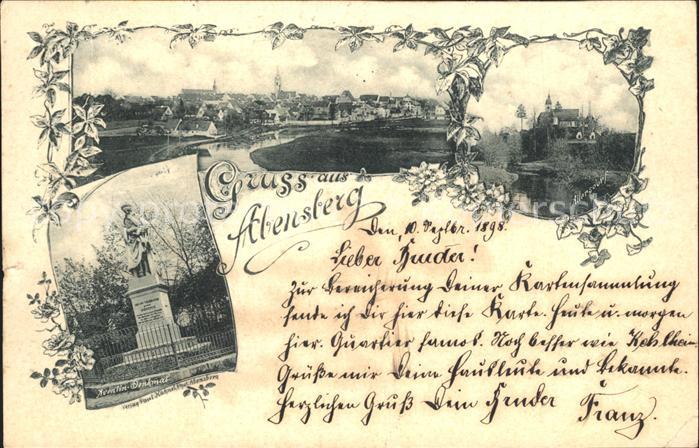 Gruss aus
Abensberg
Den, 10. Septbr. 1898.
Lieber Bruder!
Zur Bereicherung Deiner Kartensammlung
sende ich Dir hier diese Karte. Heute u. morgen
hier. Quartier famos. Noch besser wie Kehlheim.
Grüße mir Deine Hausleute und Bekannte.
Herzlichen Gruß Dein Bruder Franz.
Aventin-Denkmal
Verlag
Abensberg